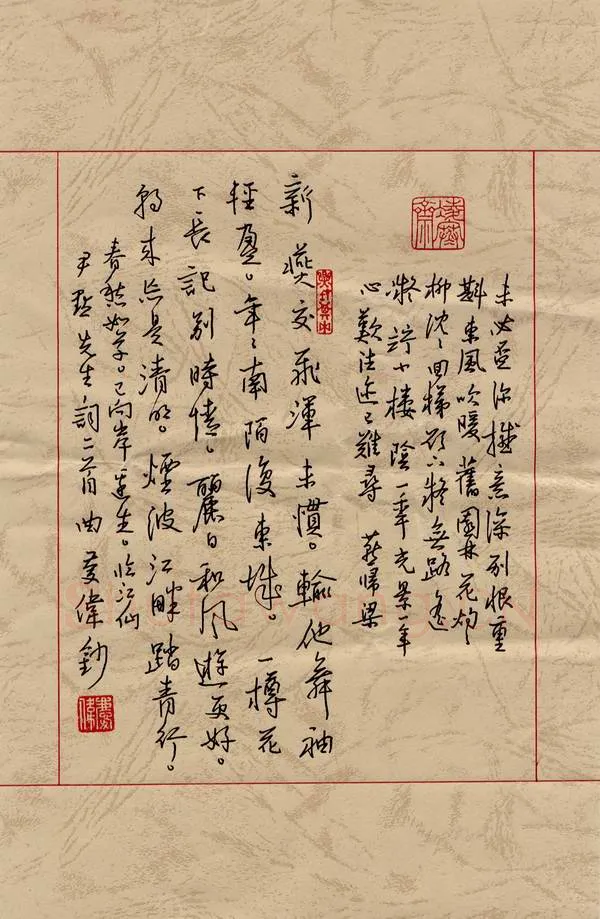 未必深意深別恨重
斟東風吹暖舊園林花灼〻
柳沈〻回梯欲下無路
凝竚小樓陰一年光景一年
心歎往迹已難尋 燕歸梁
新燕交飛渾未慣。輸他舞袖
輕盈。年〻南陌復東城。一樽花
下長記別時情。麗日和風遊更好。
來是清明。煙波江畔踏青行。
春愁如草。已向岸邊生。臨江仙
尹默先生詞二首 曲偉鈔